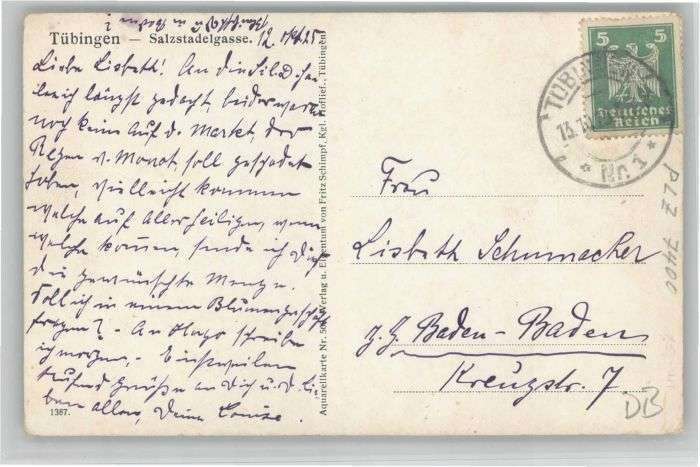 Tübingen — Salzstadelgasse. 12. Okt. 25
Liebe Lisbeth! An die
ich längst gedacht, leider waren
noch keine auf d. Markt, der
Regen v. Monat soll geschadet
haben, vielleicht kommen
welche auf Allerheiligen, wenn
welche kommen, sende ich Dir
die gewünschte Menge.
Soll ich in einem Blumengeschäft
fragen? - An Olga schreibe
ich morgen. - Einstweilen
tausend Grüße an Dich u. d. lie-
ben allen, Deine Louise.
1387.
Aquarellkarte Nr. 50. Verlag u. Eigentum von Fritz Schimpf, Kgl. Hoflief., Tübingen
5 5
Deutsches
Reich
TÜBINGEN
13.
* No. 1 *
Frau
Lisbeth Schumacher
z. Z. Baden-Baden
Kreuzstr. 7
PLZ 7400
DB